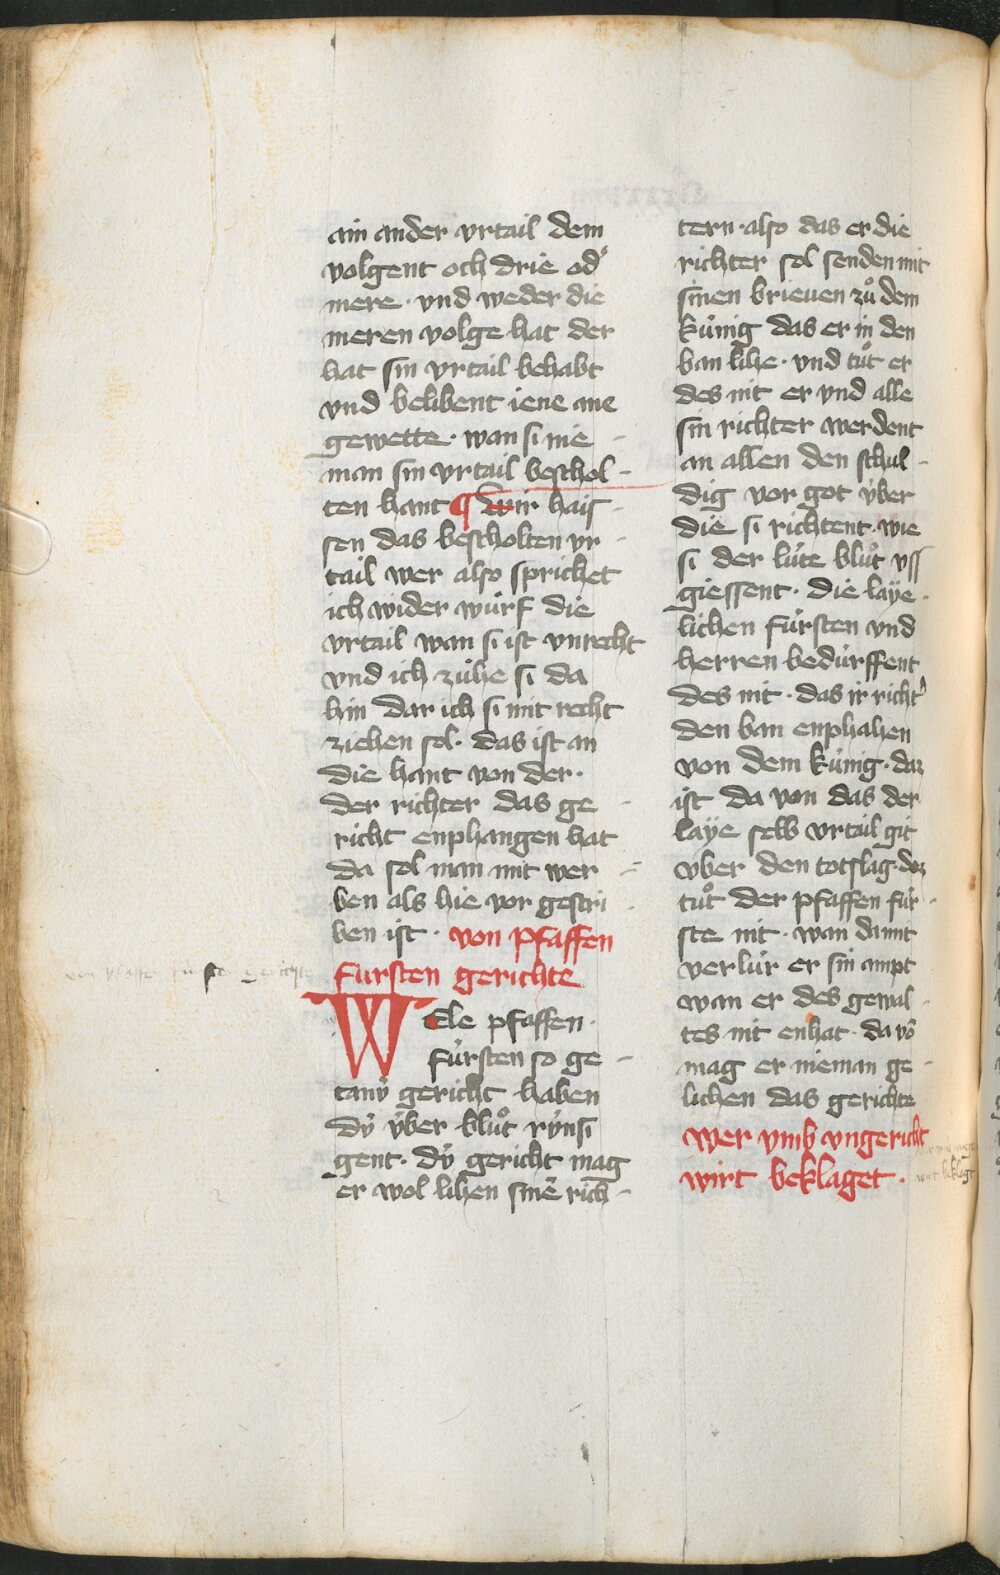 ain ander vrtail dem
volgent och drie od᾽
mere · vnd weder die
meren volge hat der
hat sin vrtail behabt
vnd belibent iene ane
gewette · wan si nie -
man sin vrtail beschol -
ten hant ¶ Wir hais -
sen das bescholten vr -
tail wer also sprichet
ich wider wúrf die
vrtail wan si ist vnrecht
vnd ich zúhe si da
hin dar ich si mit recht
ziehen sol · das ist an
die hant von der ·
der richter das ge -
richt enphangen hat
da sol man mit wer -
ben als hie vor gescri -
ben ist · von pfaffen
fursten gerichte
von pfaffen fursten gerichte
Wele pfaffen ·
fúrsten so ge -
tanv́ gericht haben
dv́ v́ber blůt rv́nsi
gent · dv́ gericht mag
er wol lihen sinē rich -
tern · also das er die
richter sol senden mit
sinen brieuen zů dem
kúnig das er in den
ban lihe · vnd tůt er
des nit er vnd alle
sin richter werdent
an allen den schul -
dig vor got v́ber
die si richtent · wie
si der lúte blůt vss
giessent · die laye -
lichen fúrsten vnd
herren bedúrffent
des nit · das ir richt᾽
den ban enphahen
von dem kúnig · daz
ist da von das der
laye selb vrtail git
vber den totslag · dez
tůt der pfaffen fúr -
ste nit · wan damit
verlúr er sin ampt
wan er des gewal -
tes nit enhat · da vō
mag er nieman ge -
lichen das gerichte
wer vmb vngericht
wirt beklaget ·
wirt beklagt